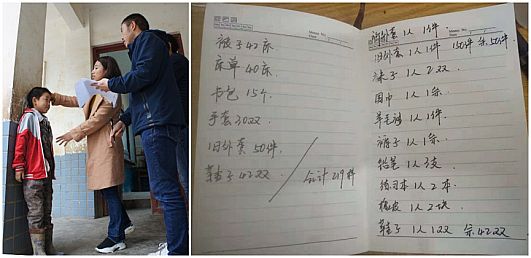 被子42床
床单40床
卡包15个
手套30双
旧外套50件
鞋子42双 合计219件
Memo No.
Date
外套1人1件
旧外套1人1件 150件 余50件
袜子1人2双
围巾1人1条
羊毛衫1人1件
裤子1人1条
铅笔1人3支
练习本1人2本
橡皮1人2块
鞋子1人1双 余42双